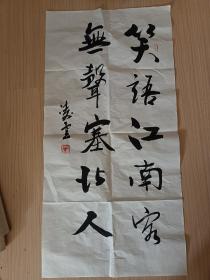 笑語江南客
無聲塞北人